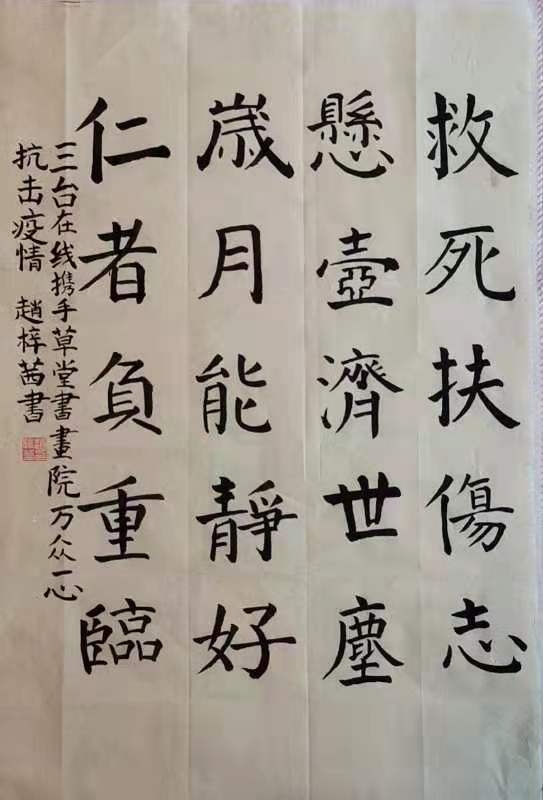 救死扶傷志
懸壺濟世塵
歲月能靜好
仁者負重臨
三台在线携手草堂書畫院万众一心
抗击疫情 趙梓茜書